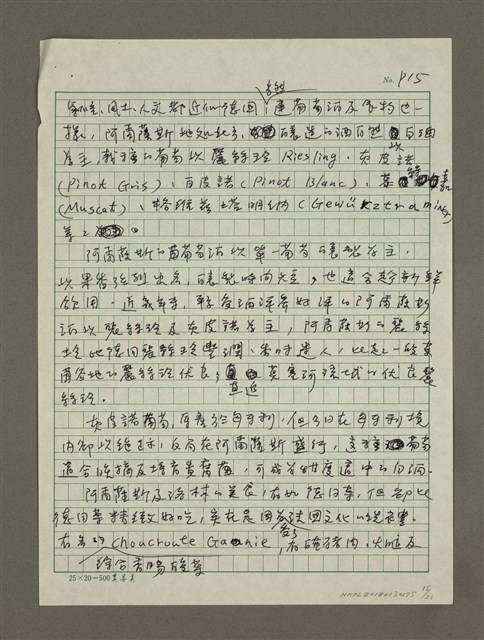 No. P15
氣候、風土、人文都近似德國，連葡萄酒及食物也一
樣，阿爾薩斯地處較寒，釀造的酒自然以白酒
為主，栽種的葡萄以麗絲玲 Riesling、灰皮諾
(Pinot Gris)、白皮諾 (Pinot Blanc)、
(Muscat)、格烏茲塔明納 (Gewürztraminer)
等。
阿爾薩斯的葡萄酒以單一葡萄釀製為主，
以果香強烈出名，釀製時間不長，也適合趁新鮮
飲用。近幾年，較受酒評界好評的阿爾薩斯
酒以麗絲玲及灰皮諾為主，阿爾薩斯的麗絲
玲比德國麗絲玲豐潤、香味迷人，比起一般萊
茵各地的麗絲玲優良，直追莫塞河流域的優良麗
絲玲。
灰皮諾葡萄，原產於匈牙利，但今日在匈牙利境
內卻以絕跡，反而在阿爾薩斯盛行，這種葡萄
適合晚摘及培育貴腐黴，可成為甜度適中的白酒。
阿爾薩斯及洛林的美食，有如德國菜，但卻比
德國菜精緻好吃，實在是因為受了法國文化的提昇。
有名的 Choucroute Garnie，有醃豬肉、火腿及
綜合香腸酸菜
25×20=500
NMTL20180130275
15/21